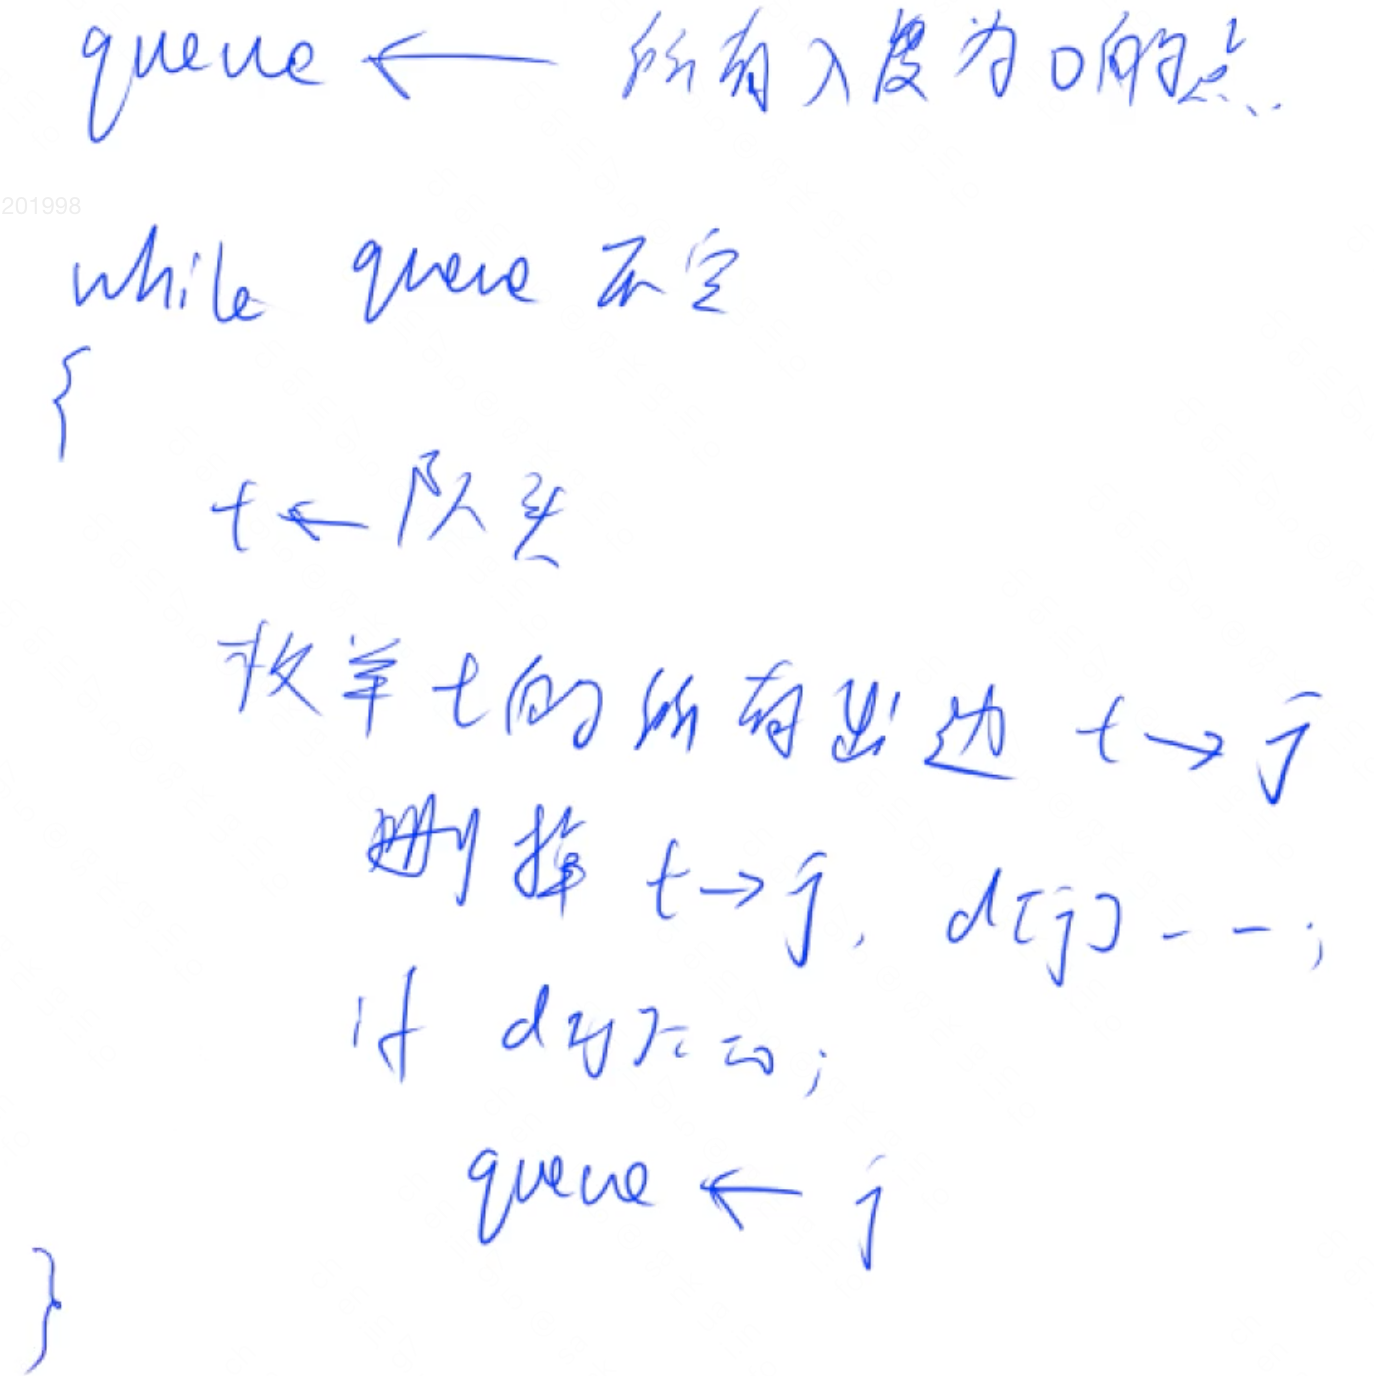 queue ← 所有入度为0的点
201998
while queue 不空
{
t ← 队头
枚举 t 的所有出边 t → j
删掉 t → j, d[j] --;
if d[j] == 0;
queue ← j
}